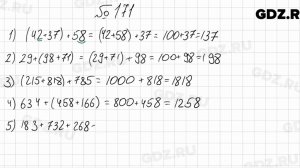 GDZ.RU
№ 171
1) (42+37)+58 = (42+58)+37 = 100+37=137
2) 29+(98+71) = (29+71)+98 = 100+98=198
3) (215+818)+785 = 1000+818=1818
4) 634+(458+166) = 800+458=1258
5) 183+732+268-
GDZ.RU